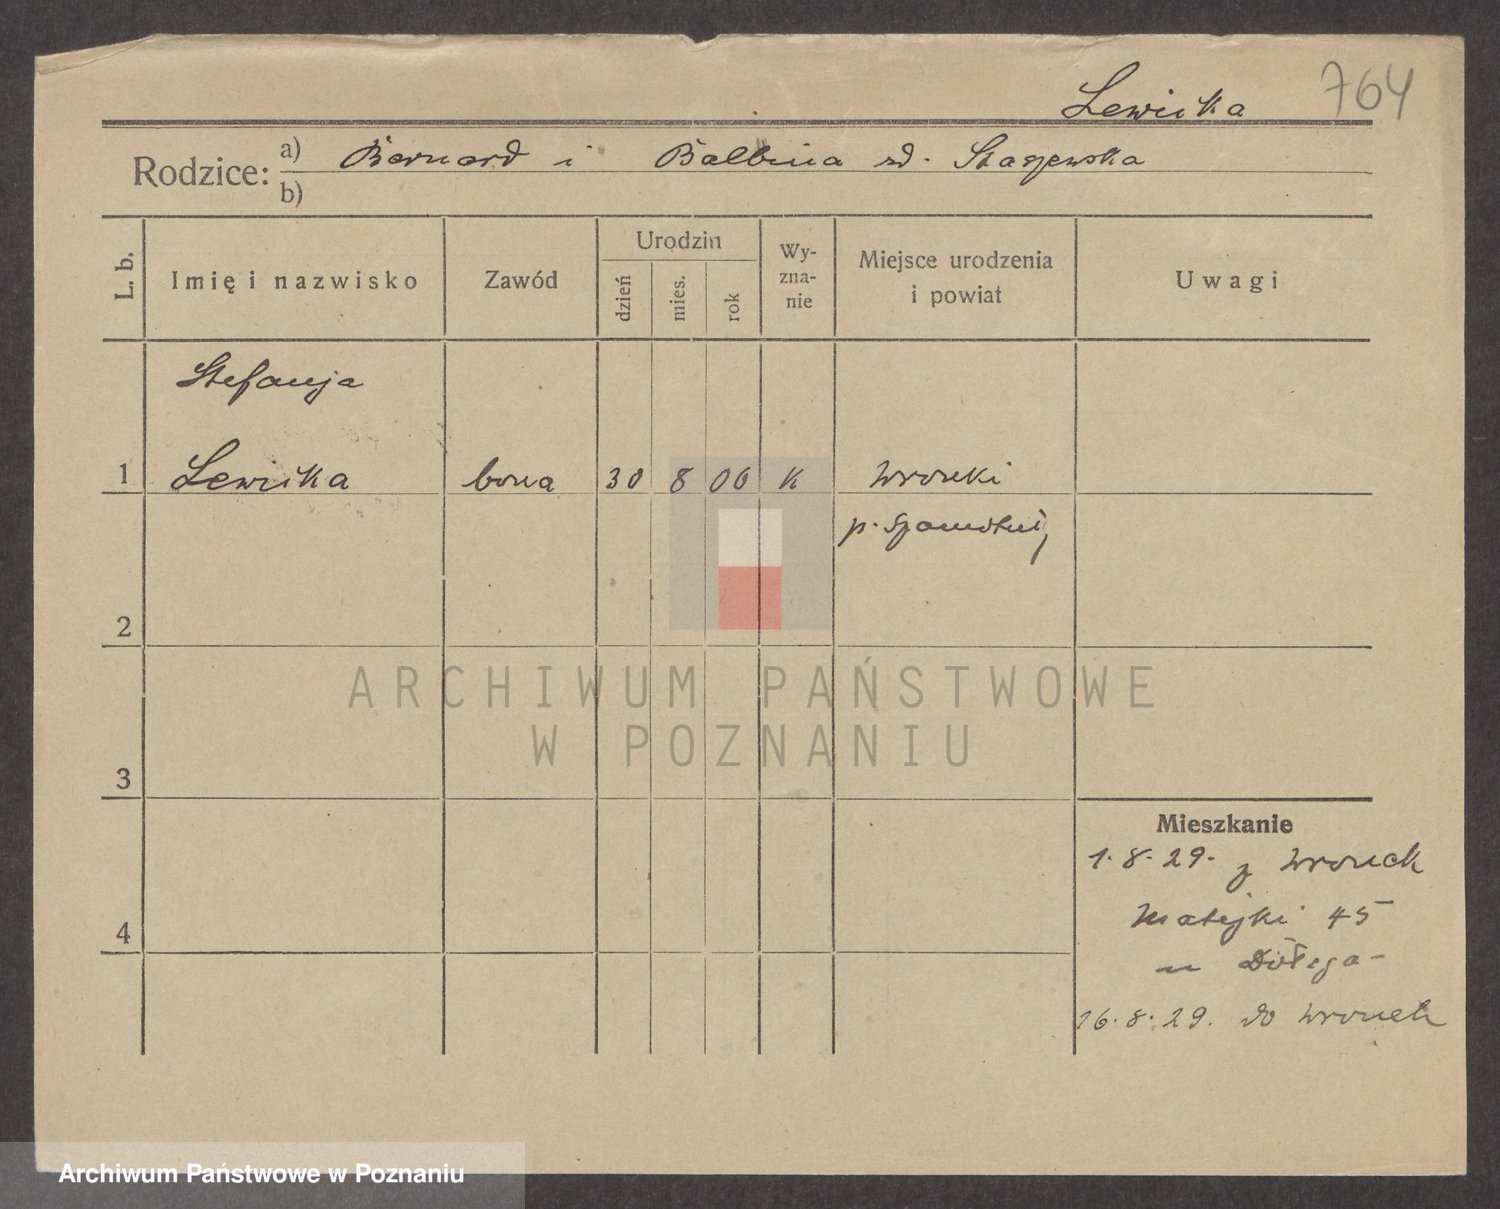 Lewicka 764
Rodzice: a) Bernard i Balbina zd. Staszewska
b)
L. b.
Imię i nazwisko
Zawód
Urodzin
dzień
mies.
rok
Wy-
zna-
nie
Miejsce urodzenia
i powiat
Uwagi
Stefanja
1 Lewicka bona 30 8 00 K Wronki
p. Szamotuły
2
3
4
Mieszkanie
1.8.29. z Wronek
Matejki 45
u Dołęga-
16.8.29. do Wronek
ARCHIWUM PAŃSTWOWE
W POZNANIU
Archiwum Państwowe w Poznaniu